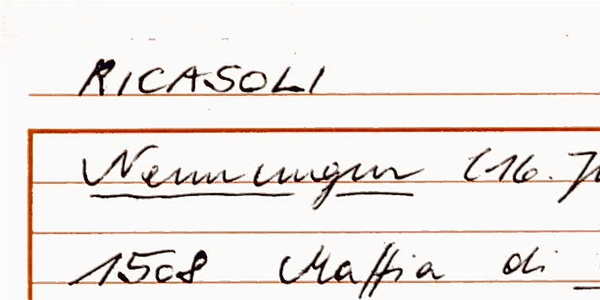 RICASOLI
Nennungen (16. J
1508 Maffia di